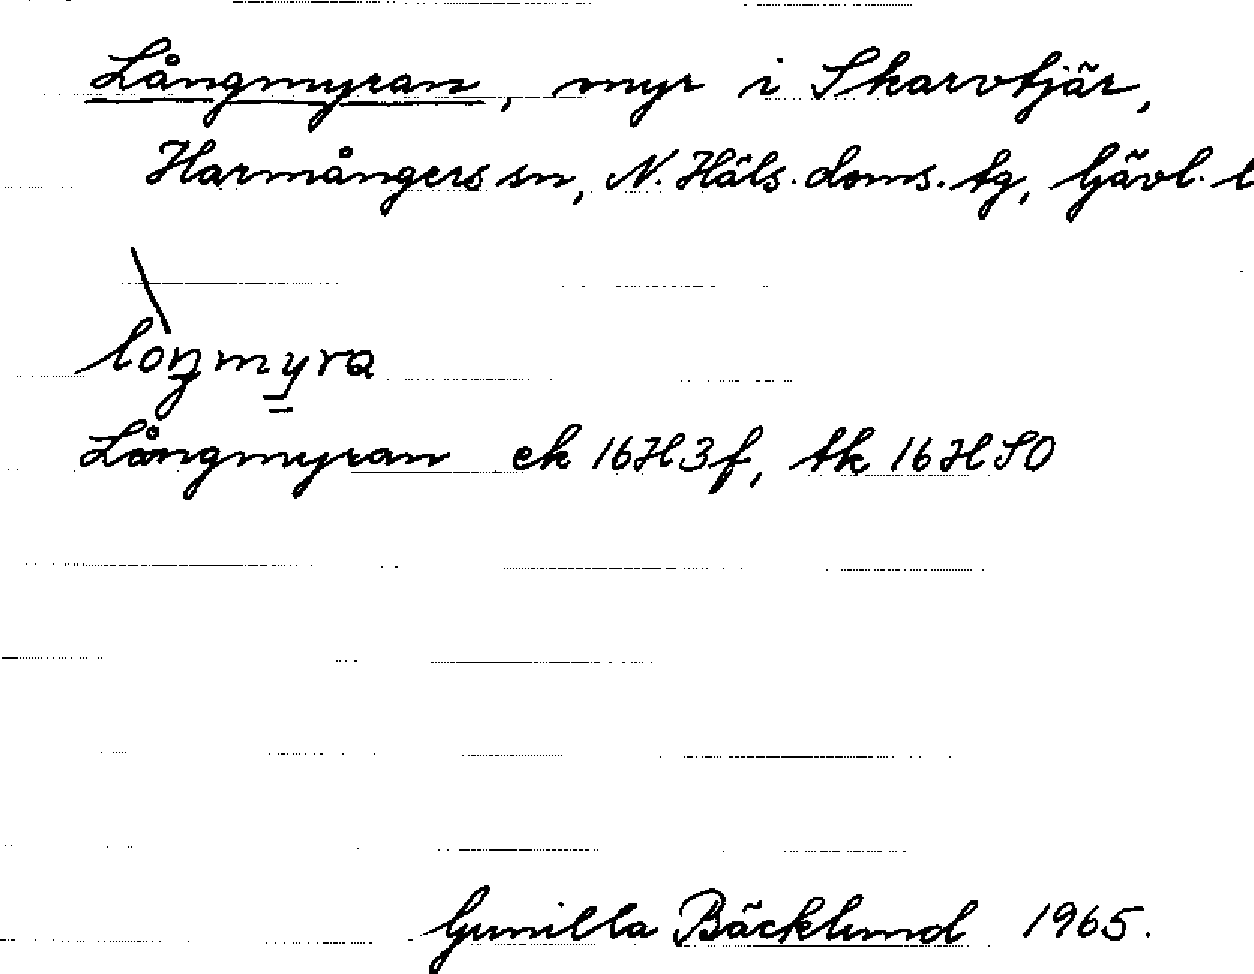 Långmyran, myr i Skarvtjär,
Harmångers sn, N. Häls. doms. tg, Gävl. l
loŋmyra
Långmyran ek 16H3f, tk 16H SO
Gunilla Bäcklund 1965.